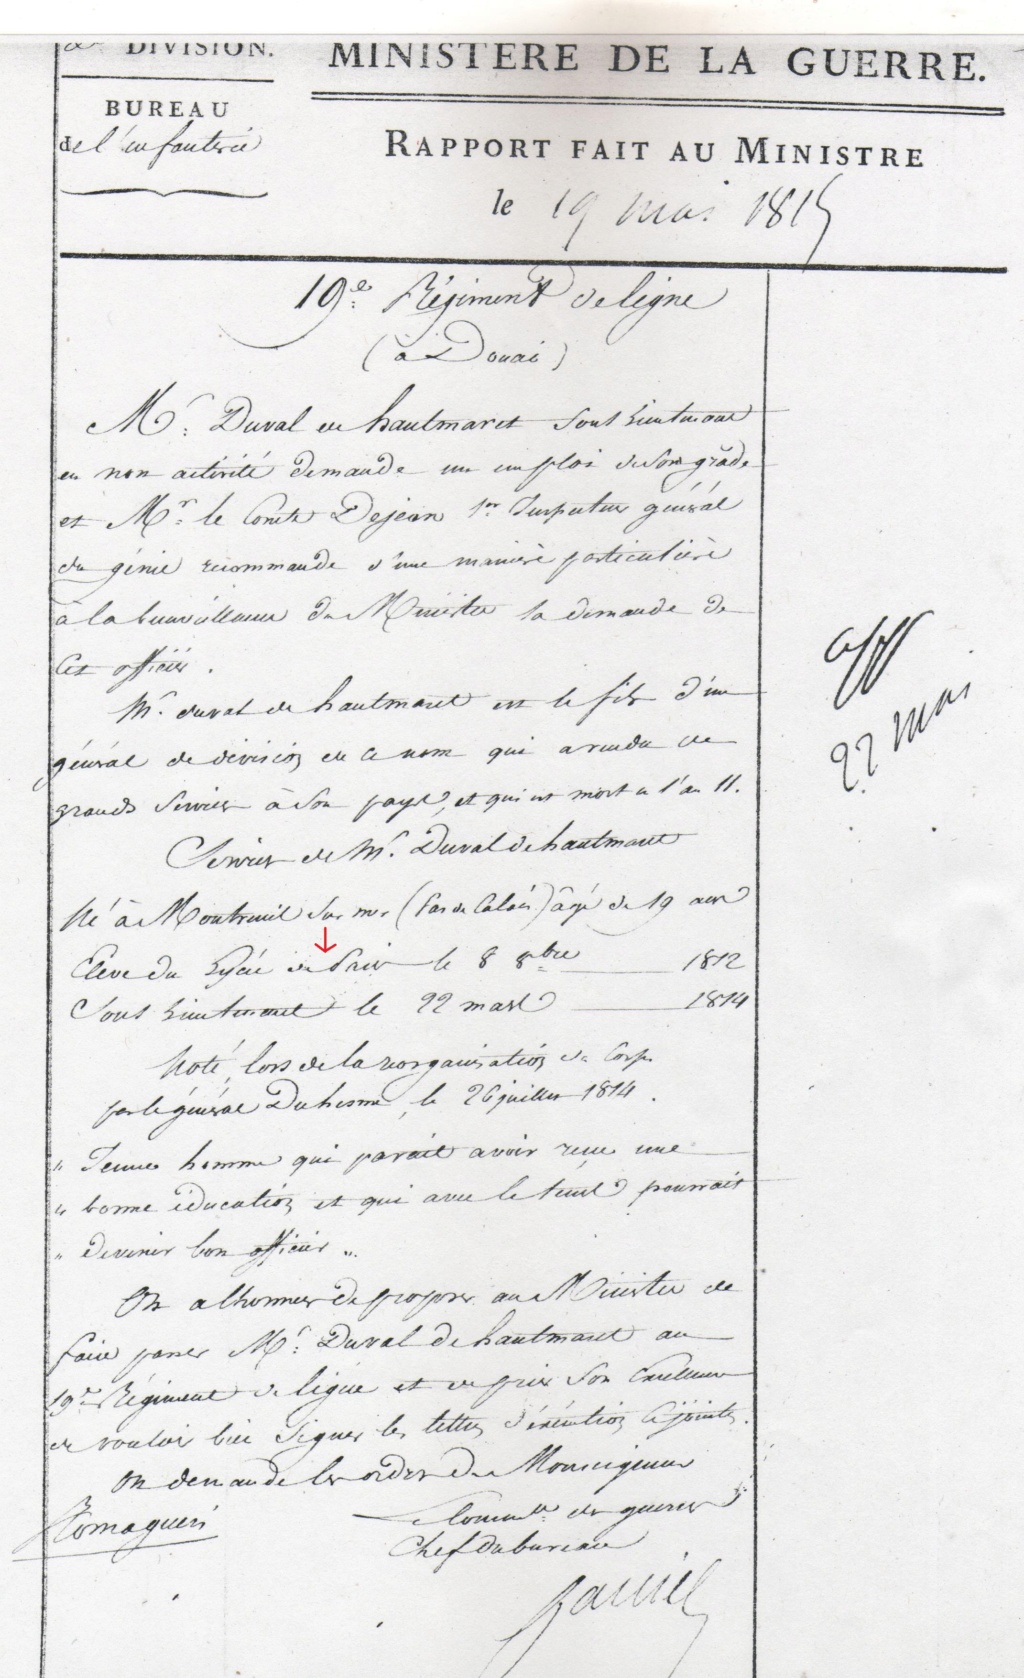 DIVISION.
MINISTERE DE LA GUERRE.
BUREAU
de l'infanterie
RAPPORT FAIT AU MINISTRE
le 19 mai 1815
19e Régiment de ligne
(à Douai)
Mr. Duval de hautmaret Sous Lieutenant
en non activité demande un emploi de son grade
et Mr. le Comte Dejean 1er Inspecteur général
du génie recommande d'une manière particulière
à la bienveillance du Ministre la demande de
Cet officier.
Mr. duval de hautmaret est le fils d'un
général de division de ce nom qui a rendu de
grands Services à Son pays, et qui est mort en l'an 11.
Services de Mr. Duval de hautmaret
Né à Montreuil Sur mer (Pas de Calais) âgé de 19 ans
Elève du Lycée de Paris le 8 8bre 1812
Sous Lieutenant le 22 mars 1814
Noté, lors de la reorganisation du Corps
par le général Duhesme, le 26 juillet 1814.
" Jeune homme qui parait avoir reçu une
" bonne éducation et qui avec le tems pourrait
" devenir bon officier ".
On a l'honneur de proposer au Ministre de
faire passer Mr. Duval de hautmaret au
19e Régiment de ligne et de prier Son Excellence
de vouloir bien Signer les lettres d'exécution Ci jointes.
On demande les ordres de Monseigneur
Le Commre. des guerres
Chef du bureau
Romagueri
22 mai